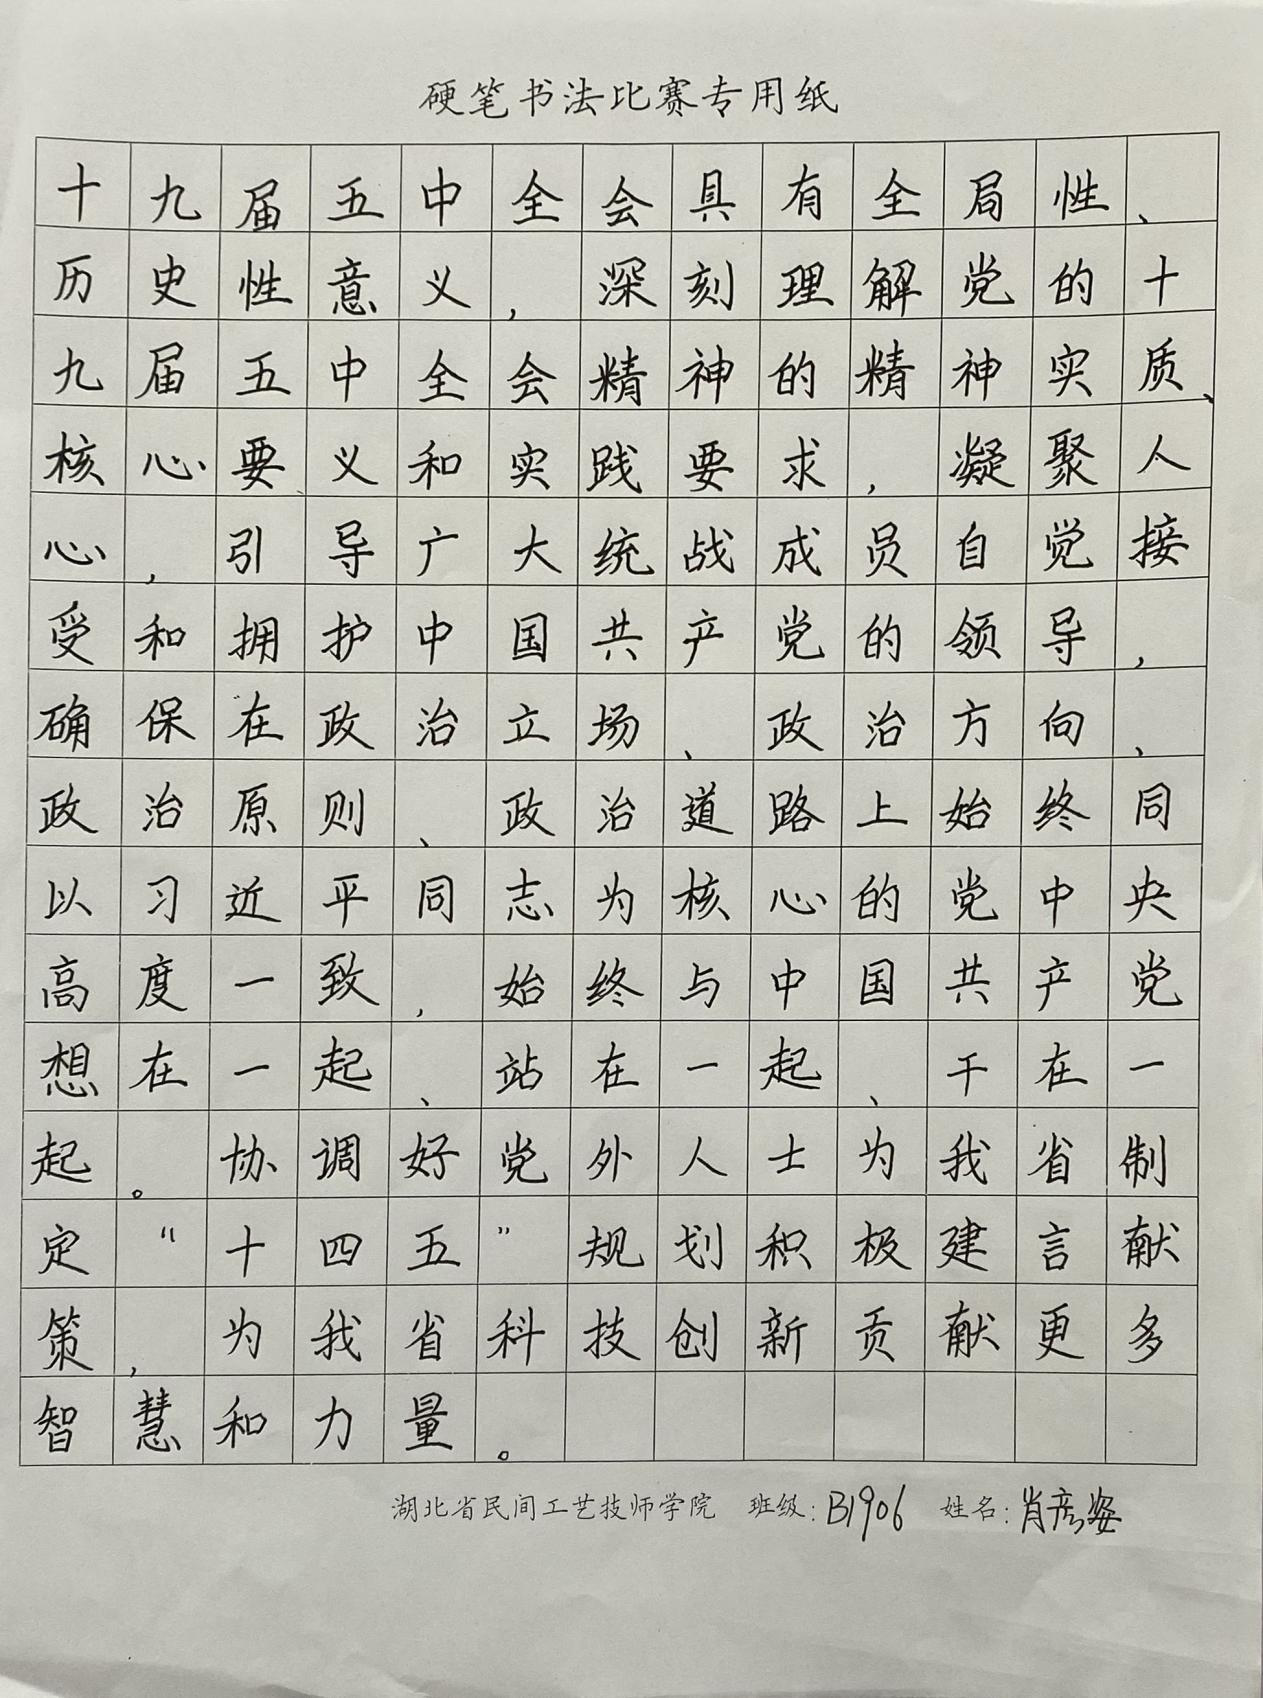 硬笔书法比赛专用纸
十九届五中全会具有全局性、
历史性意义，深刻理解党的十
九届五中全会精神的精神实质、
核心要义和实践要求，凝聚人
心，引导广大统战成员自觉接
受和拥护中国共产党的领导，
确保在政治立场、政治方向、
政治原则、政治道路上始终同
以习近平同志为核心的党中央
高度一致，始终与中国共产党
想在一起、站在一起、干在一
起。协调好党外人士为我省制
定“十四五”规划积极建言献
策，为我省科技创新贡献更多
智慧和力量。
湖北省民间工艺技师学院 班级：B1906 姓名：肖彦姿